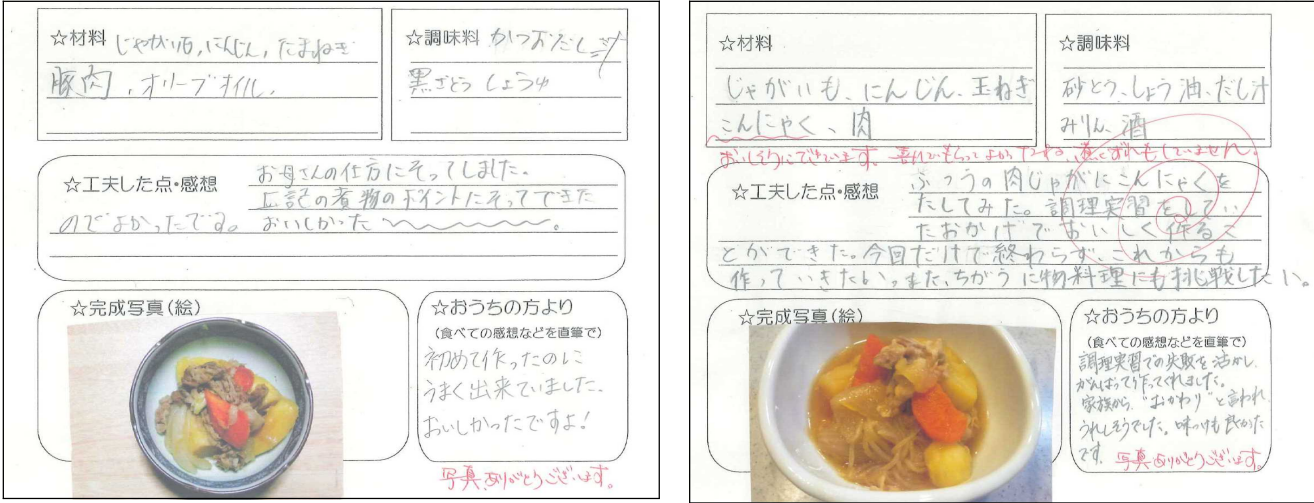 ☆材料 じゃがいも,にんじん,たまねぎ
豚肉,オリーブオイル.
☆調味料 かつおだし
黒ざとう しょうゆ
☆工夫した点・感想
お母さんの仕方にそってしました。
広記の煮物のポイントにそってできた
のでよかったです。おいしかった 。
☆完成写真(絵)
☆おうちの方より
(食べての感想などを直筆で)
初めて作ったのに
うまく出来ていました。
おいしかったですよ!
写真ありがとうございます。
☆材料
じゃがいも、にんじん、玉ねぎ
こんにゃく、肉
☆調味料
砂とう、しょう油、だし汁
みりん、酒
おいしそうにできています。煮くずれもしていません。
☆工夫した点・感想
ふつうの肉じゃがにこんにゃくを
たしてみた。調理実習をしてい
たおかげでおいしく作るこ
とができた。今回だけで終わらず、これからも
作っていきたい。また、ちがうに物料理にも挑戦したい。
☆完成写真(絵)
☆おうちの方より
(食べての感想などを直筆で)
調理実習での失敗を活かし、
がんばって作ってくれました。
家族から、"おかわり"と言われ
うれしそうでした。味つけも良かった
です。
写真ありがとうございます。